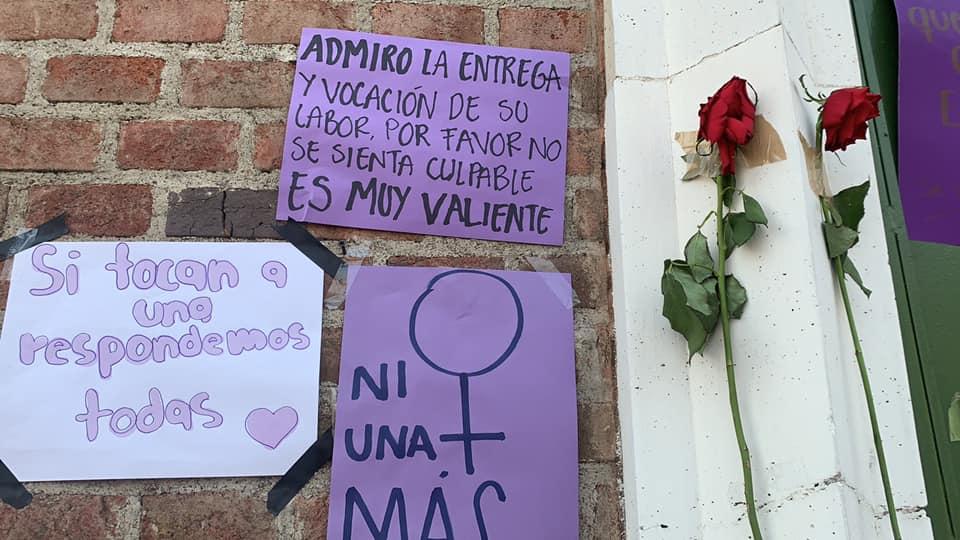 ADMIRO LA ENTREGA
Y VOCACIÓN DE SU
LABOR, POR FAVOR NO
SE SIENTA CULPABLE
ES MUY VALIENTE
Si tocan a
una
respondemos
todas
NI
UNA
MÁS
que